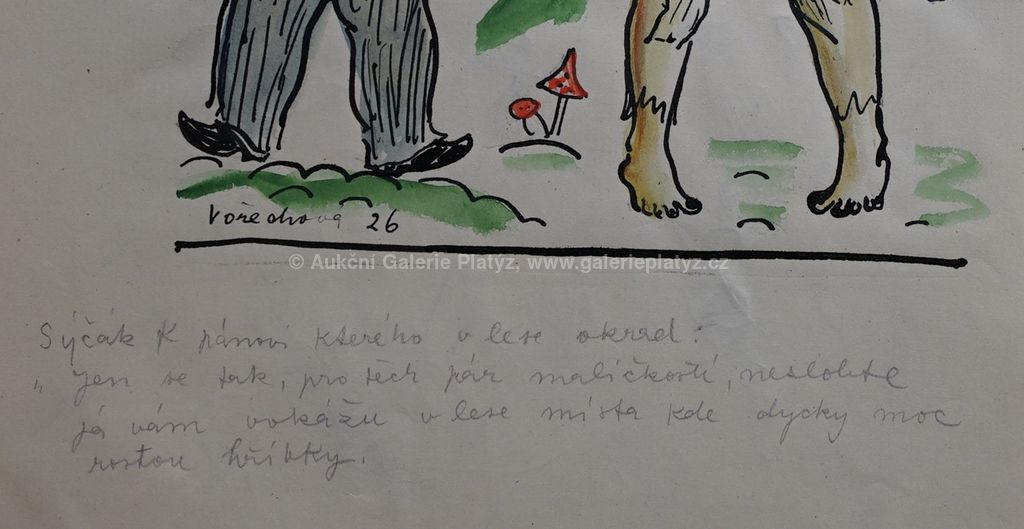 Vořechová 26
© Aukční Galerie Platýz, www.galerieplatyz.cz
Sýčák K pánovi kterého v lese okrad:
„Jen se tak, pro těch pár maličkostí, neslobte
já vám vokážu v lese místa kde dycky moc
rostou hříbky.